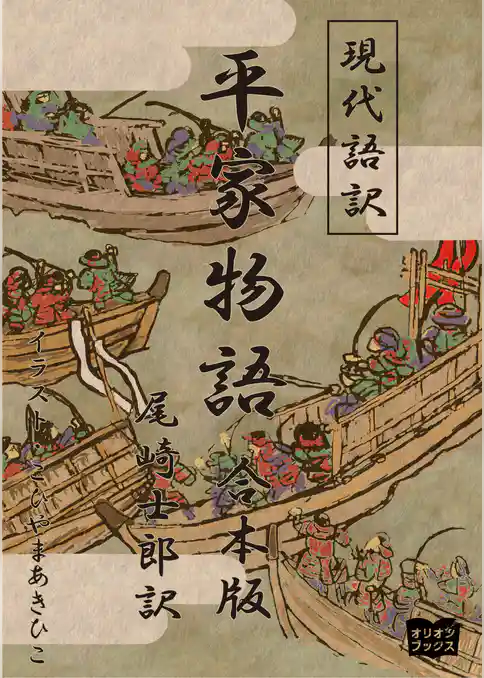 現代語訳
平家物語 合本版
尾崎士郎訳
イラスト・こひやまあきひこ
オリオン
ブックス